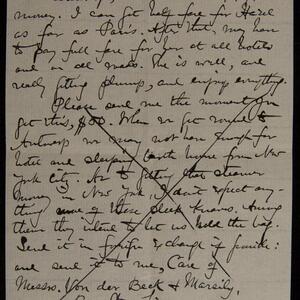 money. I can get half fare for Hazel
as far as Paris. After that, may have
to pay full fare for her at all hotels
and on all roads. She is well, and
really getting plump, and enjoying everything.
Please send me the moment you
get this, $50. When we get round to
Antwerp we may not have enough for
hotel and sleeping berth home from New
York City. As to getting that steamer
money in New York, I don't expect any-
thing more of those sleek knaves. Among
them they intend to let us hold the bag.
Send it in foreign exchange if possible:
and send it to me, Care of
Messrs. Von der Beck & Marsily,